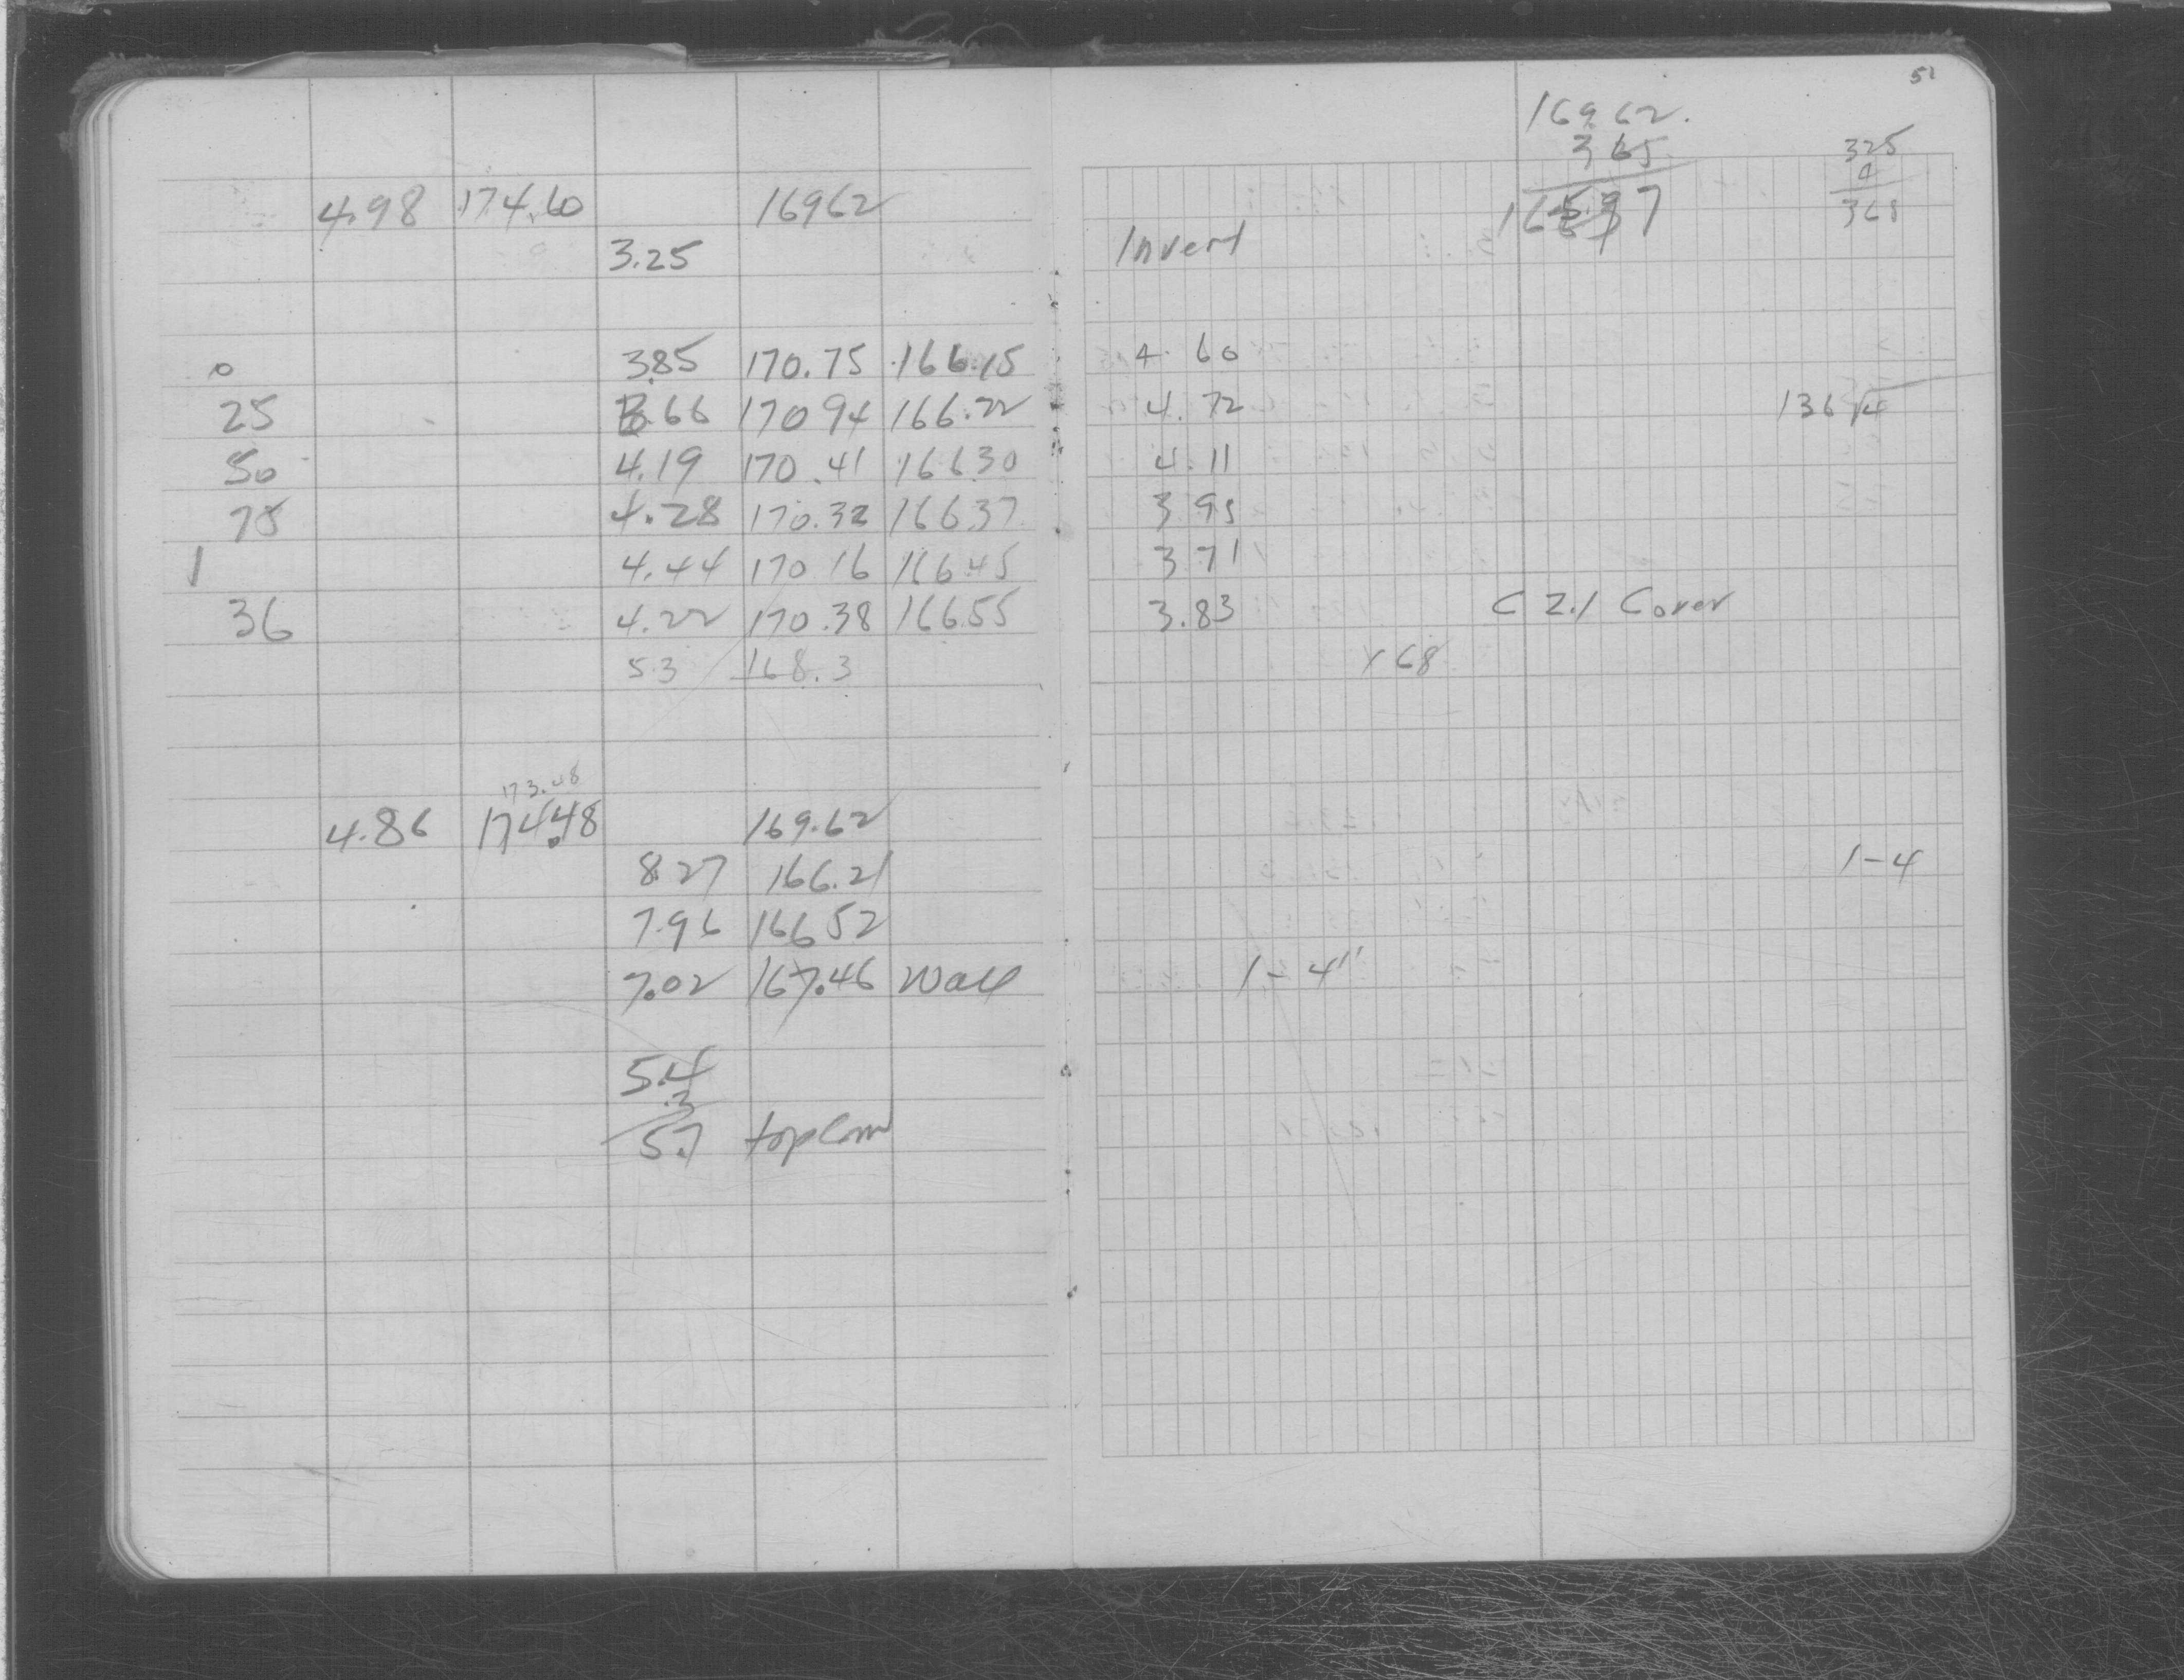 51
16962.
365
16597
325
4
365
4.98 174.60 16962
3.25 Invert
0 3.85 170.75 166.15 4.60
25 3.66 170 94 166.22 4.72 136
50 4.19 170.41 166 30 4.11
75 4.28 170.32 166 37 3 95
1 4.44 170 16 166.45 3 71
36 4.22 170.38 166 55 3.83 C 2.1 Cover
5.3 168.3 x 68
173.48
4.86 174.48 169.62
8.27 166.21 1-4
7.96 166 52
7.02 167.46 Wall 1-4"
5.4
.3
5.7 top